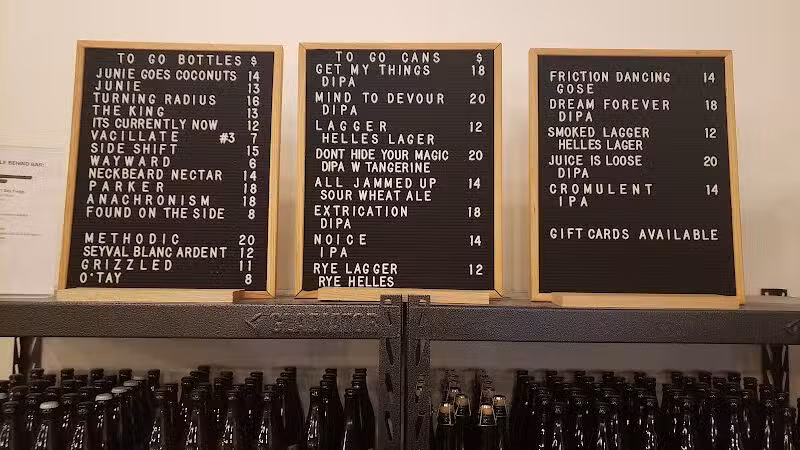 TO GO BOTTLES $
JUNIE GOES COCONUTS 14
JUNIE 13
TURNING RADIUS 16
THE KING 13
ITS CURRENTLY NOW 12
VACILLATE #3 7
SIDE SHIFT 15
WAYWARD 6
NECKBEARD NECTAR 14
PARKER 18
ANACHRONISM 18
FOUND ON THE SIDE 8
METHODIC 20
SEYVAL BLANC ARDENT 12
GRIZZLED 11
O'TAY 8
TO GO CANS $
GET MY THINGS 18
DIPA
MIND TO DEVOUR 20
DIPA
LAGGER 12
HELLES LAGER
DONT HIDE YOUR MAGIC 20
DIPA W TANGERINE
ALL JAMMED UP 14
SOUR WHEAT ALE
EXTRICATION 18
DIPA
NOICE 14
IPA
RYE LAGGER 12
RYE HELLES
FRICTION DANCING 14
GOSE
DREAM FOREVER 18
DIPA
SMOKED LAGGER 12
HELLES LAGER
JUICE IS LOOSE 20
DIPA
CROMULENT 14
IPA
GIFT CARDS AVAILABLE
GLADIATOR
BEHIND BAR: